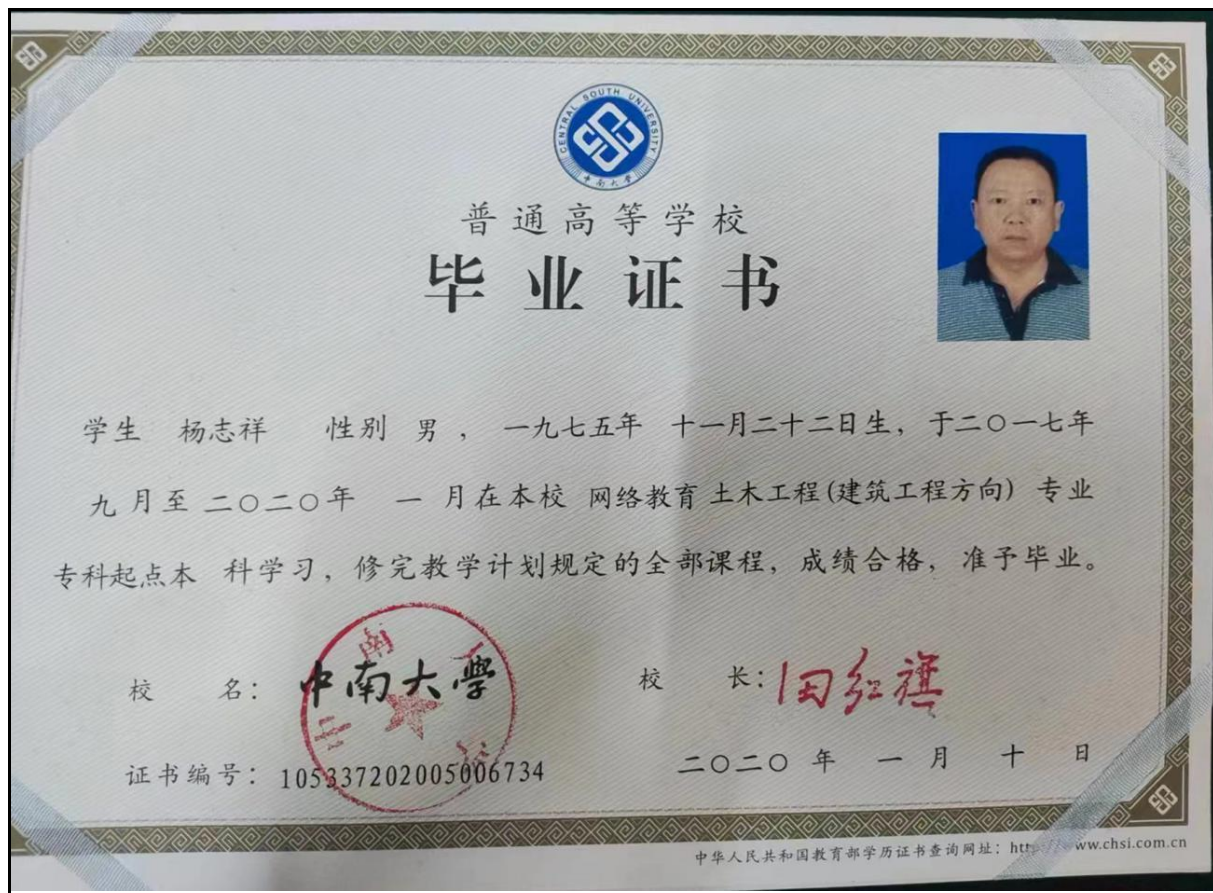 CENTRAL SOUTH UNIVERSITY
中南大学
普通高等学校
毕业证书
学生 杨志祥 性别 男 , 一九七五年 十一月二十二日生, 于二〇一七年
九月至二〇二〇年 一 月在本校 网络教育 土木工程(建筑工程方向) 专业
专科起点本 科学习, 修完教学计划规定的全部课程, 成绩合格, 准予毕业。
校 名: 中南大學
校 长: 田红旗
证书编号: 105337202005006734
二〇二〇 年 一 月 十 日
中华人民共和国教育部学历证书查询网址: ww.chsi.com.cn